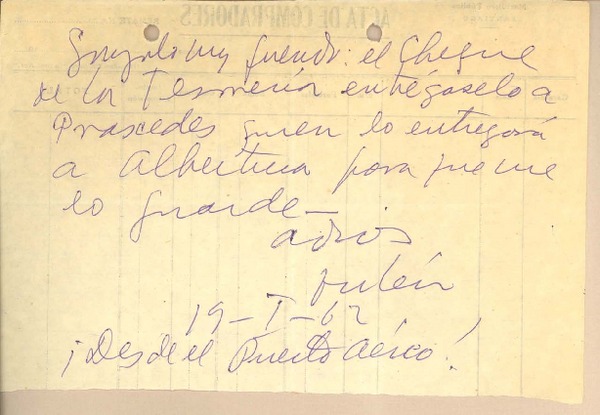 ACTA DE COMPRADORES
Gonzalo muy querido: el Cheque
de la Tesorería entrégaselo a
Praxcedes quien lo entregará
a Albertina para que me
lo guarde —
adios
Rubén
19-I-62
¡Desde el Puerto Aéreo!